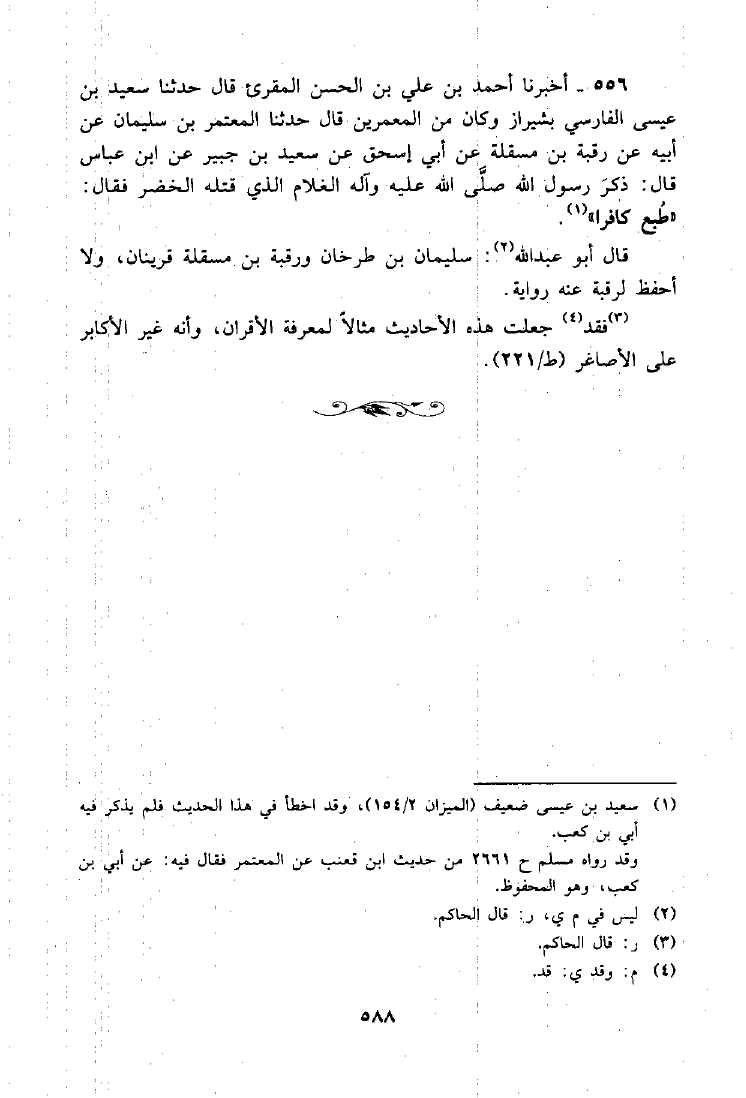 ٥٥٦ - أخبرنا أحمد بن علي بن الحسن المقرئ قال حدثنا سعيد بن
عيسى الفارسي بشيراز وكان من المعمرين قال حدثنا المعتمر بن سليمان عن
أبيه عن رقبة بن مسقلة عن أبي إسحق عن سعيد بن جبير عن ابن عباس
قال: ذكرَ رسول الله صلَّى الله عليه وآله الغلام الذي قتله الخضر فقال:
«طُبع كافرا»(١).
قال أبو عبدالله(٢): سليمان بن طرخان ورقبة بن مسقلة قرينان، ولا
أحفظ لرقبة عنه رواية.
(٣)فقد(٤) جعلت هذه الأحاديث مثالاً لمعرفة الأقران، وأنه غير الأكابر
على الأصاغر (ط/٢٢١).
(١) سعيد بن عيسى ضعيف (الميزان ١٥٤/٢)، وقد اخطأ في هذا الحديث فلم يذكر فيه
أبي بن كعب.
وقد رواه مسلم ح ٢٦٦١ من حديث ابن قعنب عن المعتمر فقال فيه: عن أبي بن
كعب، وهو المحفوظ.
(٢) ليس في م ي، ر: قال الحاكم.
(٣) ر: قال الحاكم.
(٤) م: وقد ي: قد.
٥٨٨